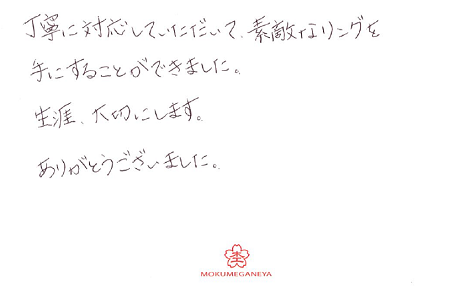 丁寧に対応していただいて、素敵なリングを
手にすることができました。
生涯、大切にします。
ありがとうございました。
MOKUMEGANEYA